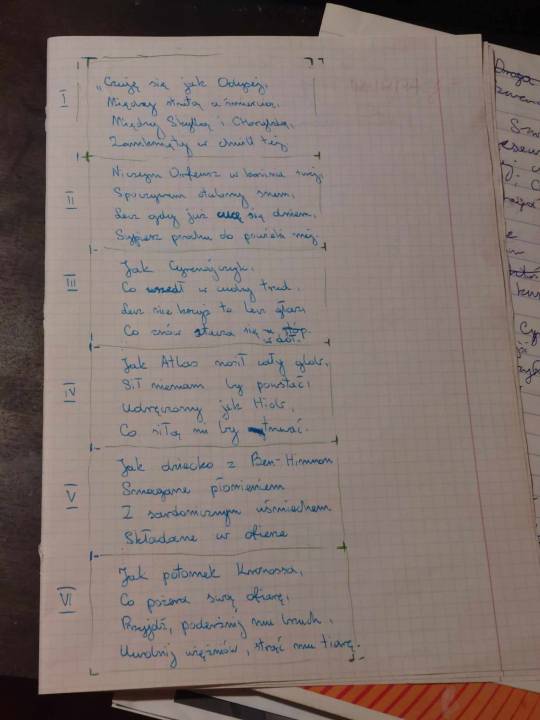 I
„Czuję się jak Odysej,
Między stratą a śmiercią,
Między Skyllą i Charybdą,
Zamknięty w chwili tej.
II
Niczym Orfeusz w barwie
Spoczywam otulony snem,
Lecz gdy już cucę się dniem,
Sypiesz prochu do powieki mej.
III
Jak Cyrenajczyk,
Co wszedł w cudzy trud.
Lecz nie krzyż to lecz głaz,
Co znów stacza się u stóp.
w dół.
IV
Jak Atlas nosił cały glob,
Sił niemam by powstać,
Udręczony jak Hiob,
Co siłą mu by trwać.
V
Jak dziecko z Ben-Hinnon
Smagane płomieniem
Z sardonicznym uśmiechem
Składane w ofierze
VI
Jak potomek Kronossa,
Co pożera swą ofiarę,
Przyjdź, poderżnij mu brzuch,
Uwolnij więźniów, strąć mu tiarę.